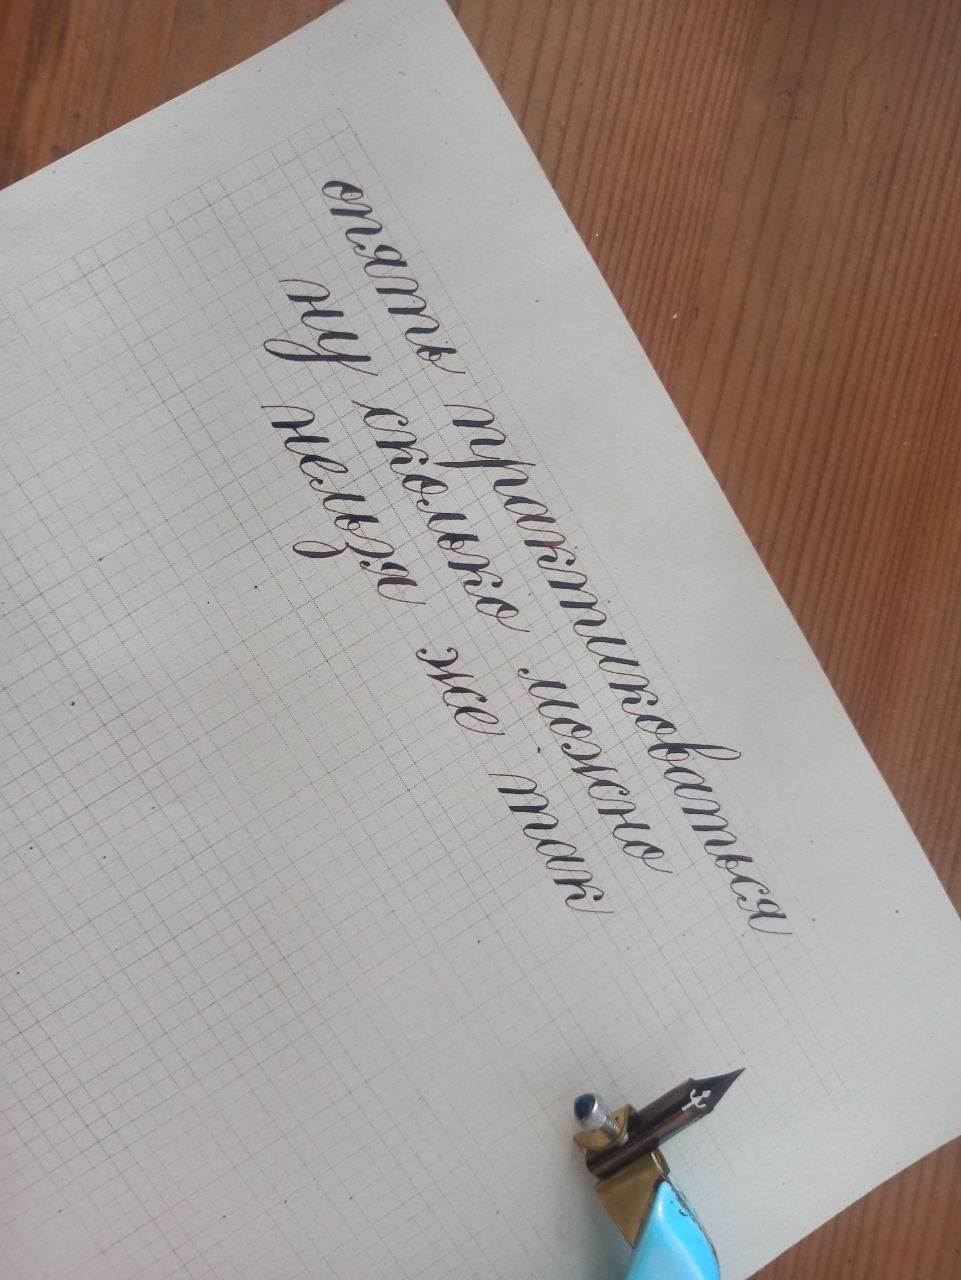 опять практиковаться
ну сколько можно
нельзя же так